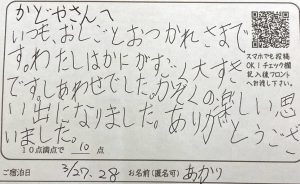 かどやさんへ
いつも、おしごとおつかれさまで
す。わたしはかにがすごく大すき
です。しあわせでした。かぞくの楽しい思
い出になりました。ありがとうござ
いました。
10点満点で 10 点
ご宿泊日 3/27.28 お名前(匿名可) あかり
スマホでも投稿
OK！チェック欄
記入後フロント
へお渡し下さい。